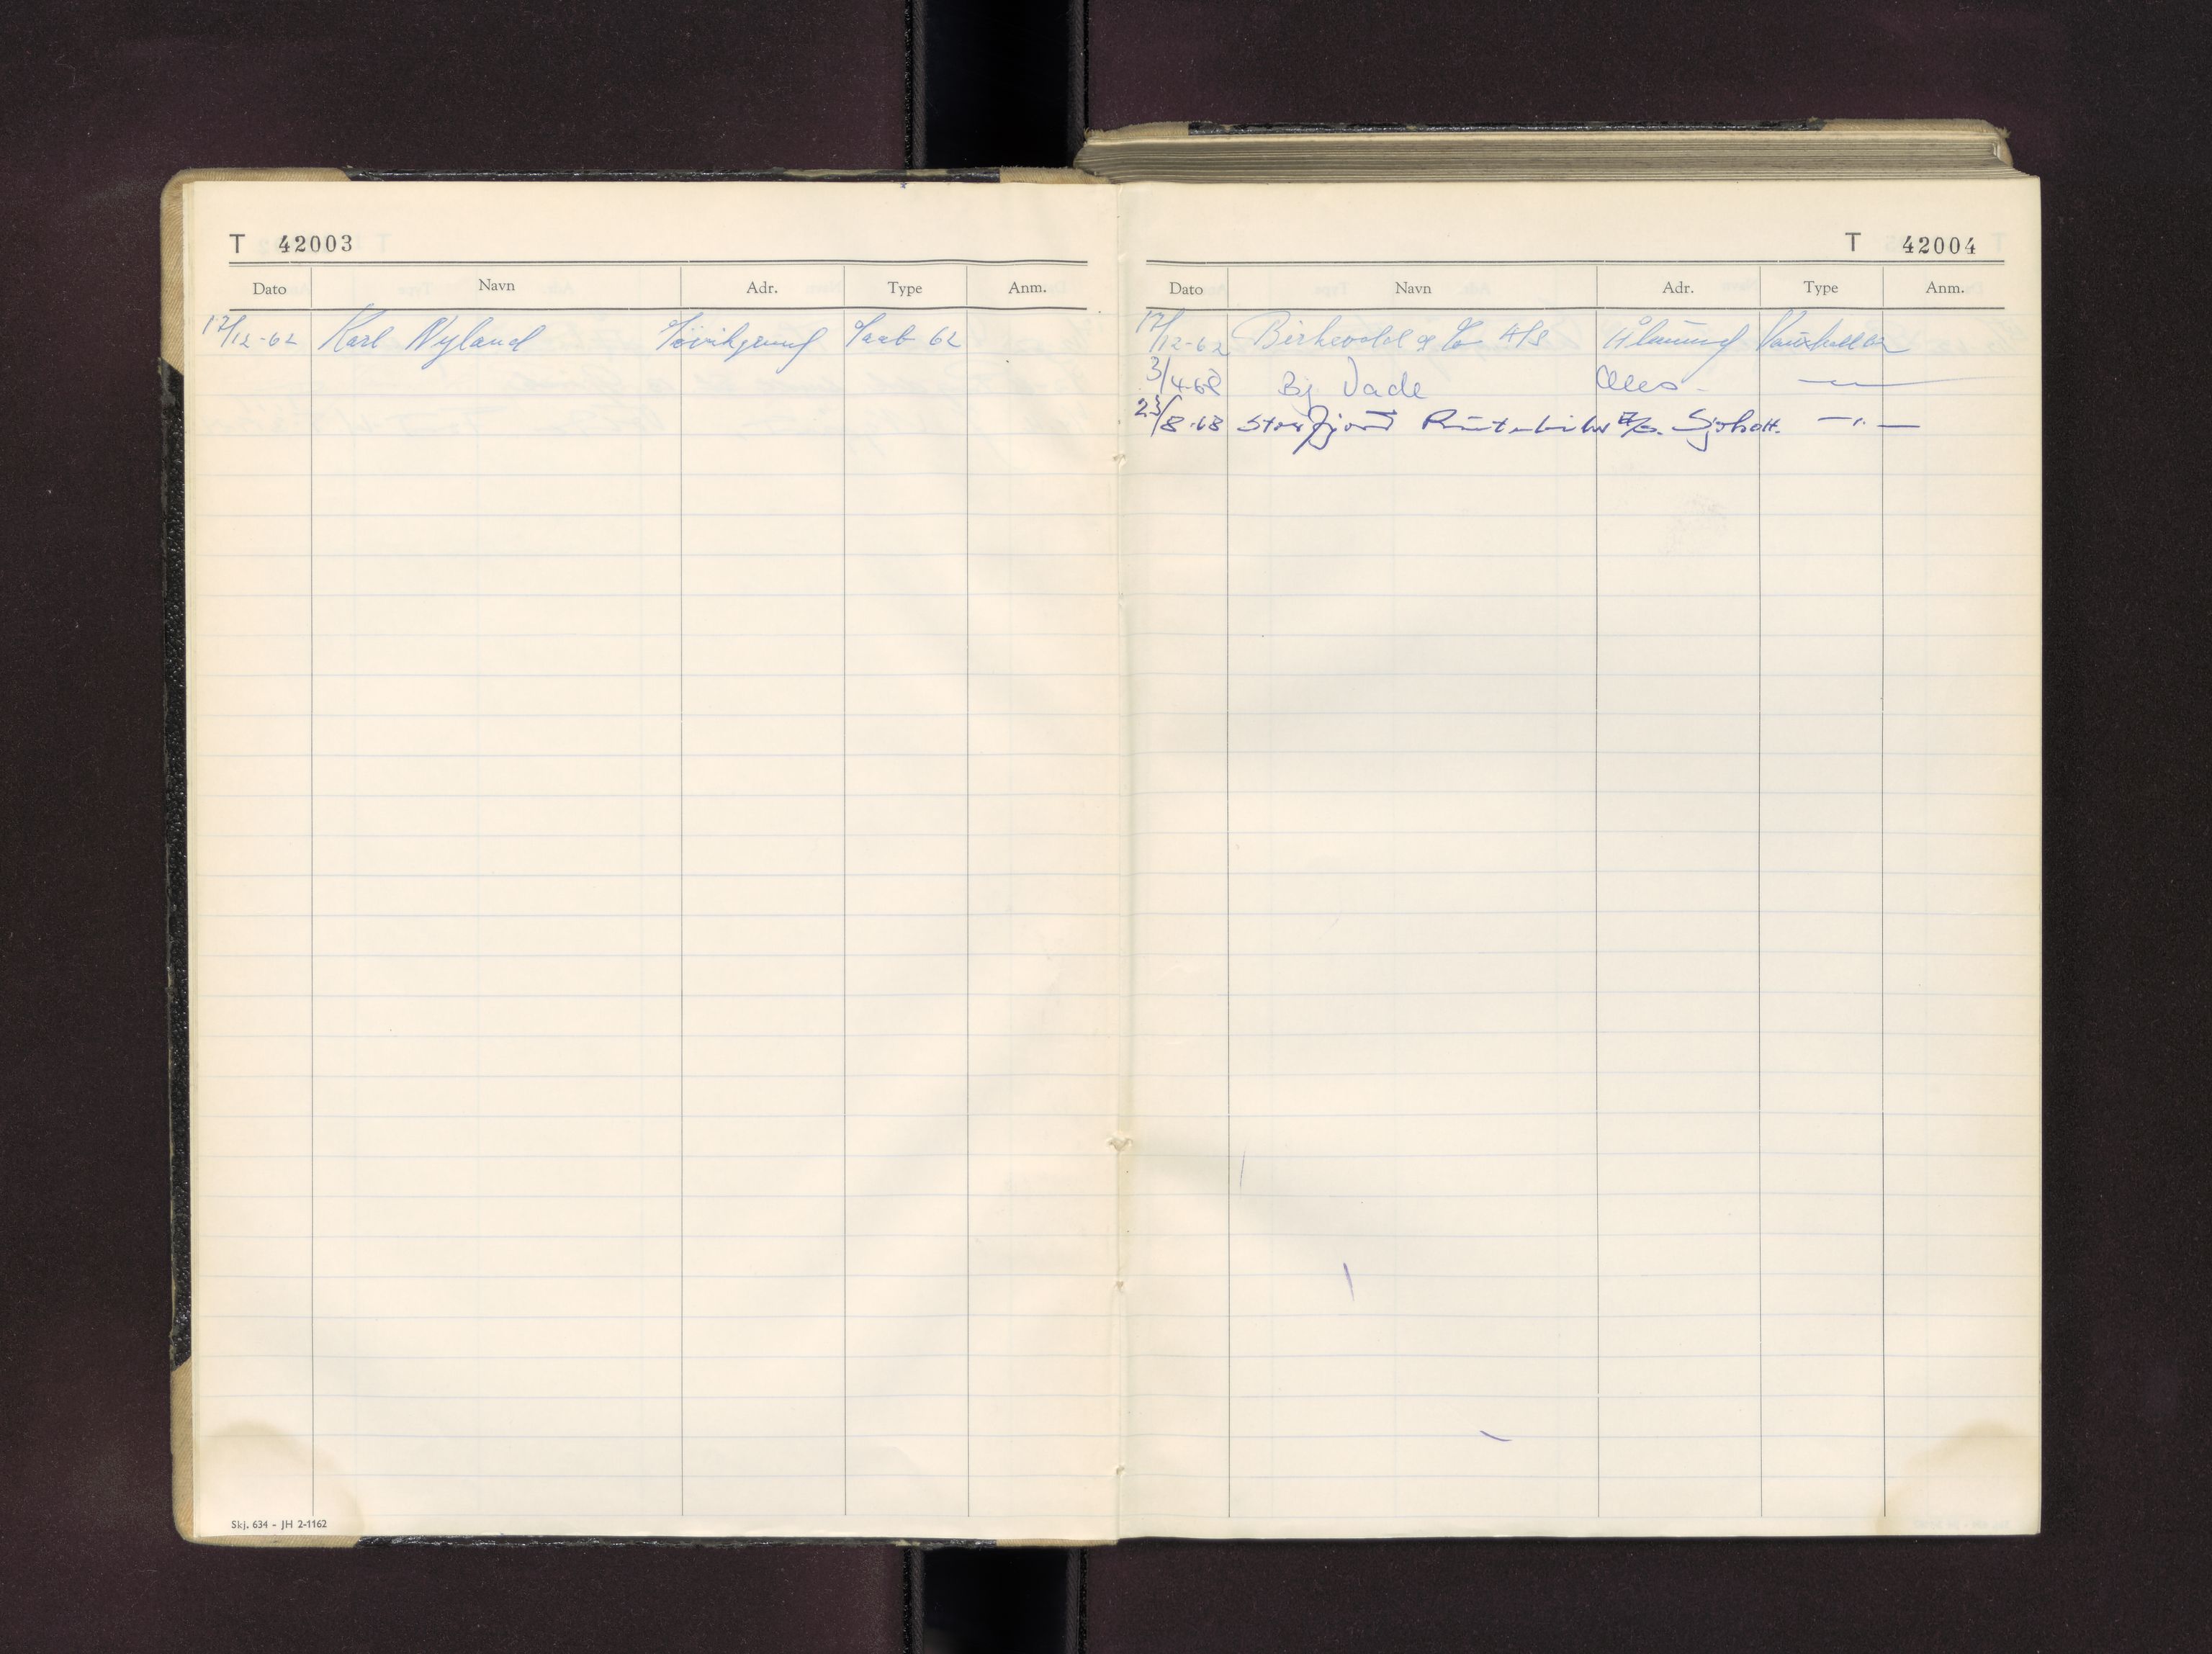 T 42003
Dato Navn Adr. Type Anm.
17/12-62 Karl Nyland Tövikgrend Saab 62
Skj. 634 - JH 2-1162
T 42004
Dato Navn Adr. Type Anm.
17/12-62 Birkevold & Co A/S Ålesund Vauxhall 62
3/4-68 Bj Vade Ales -"-
23/8-68 Storfjord Rutebiler A/S. Sjøholt. -"-